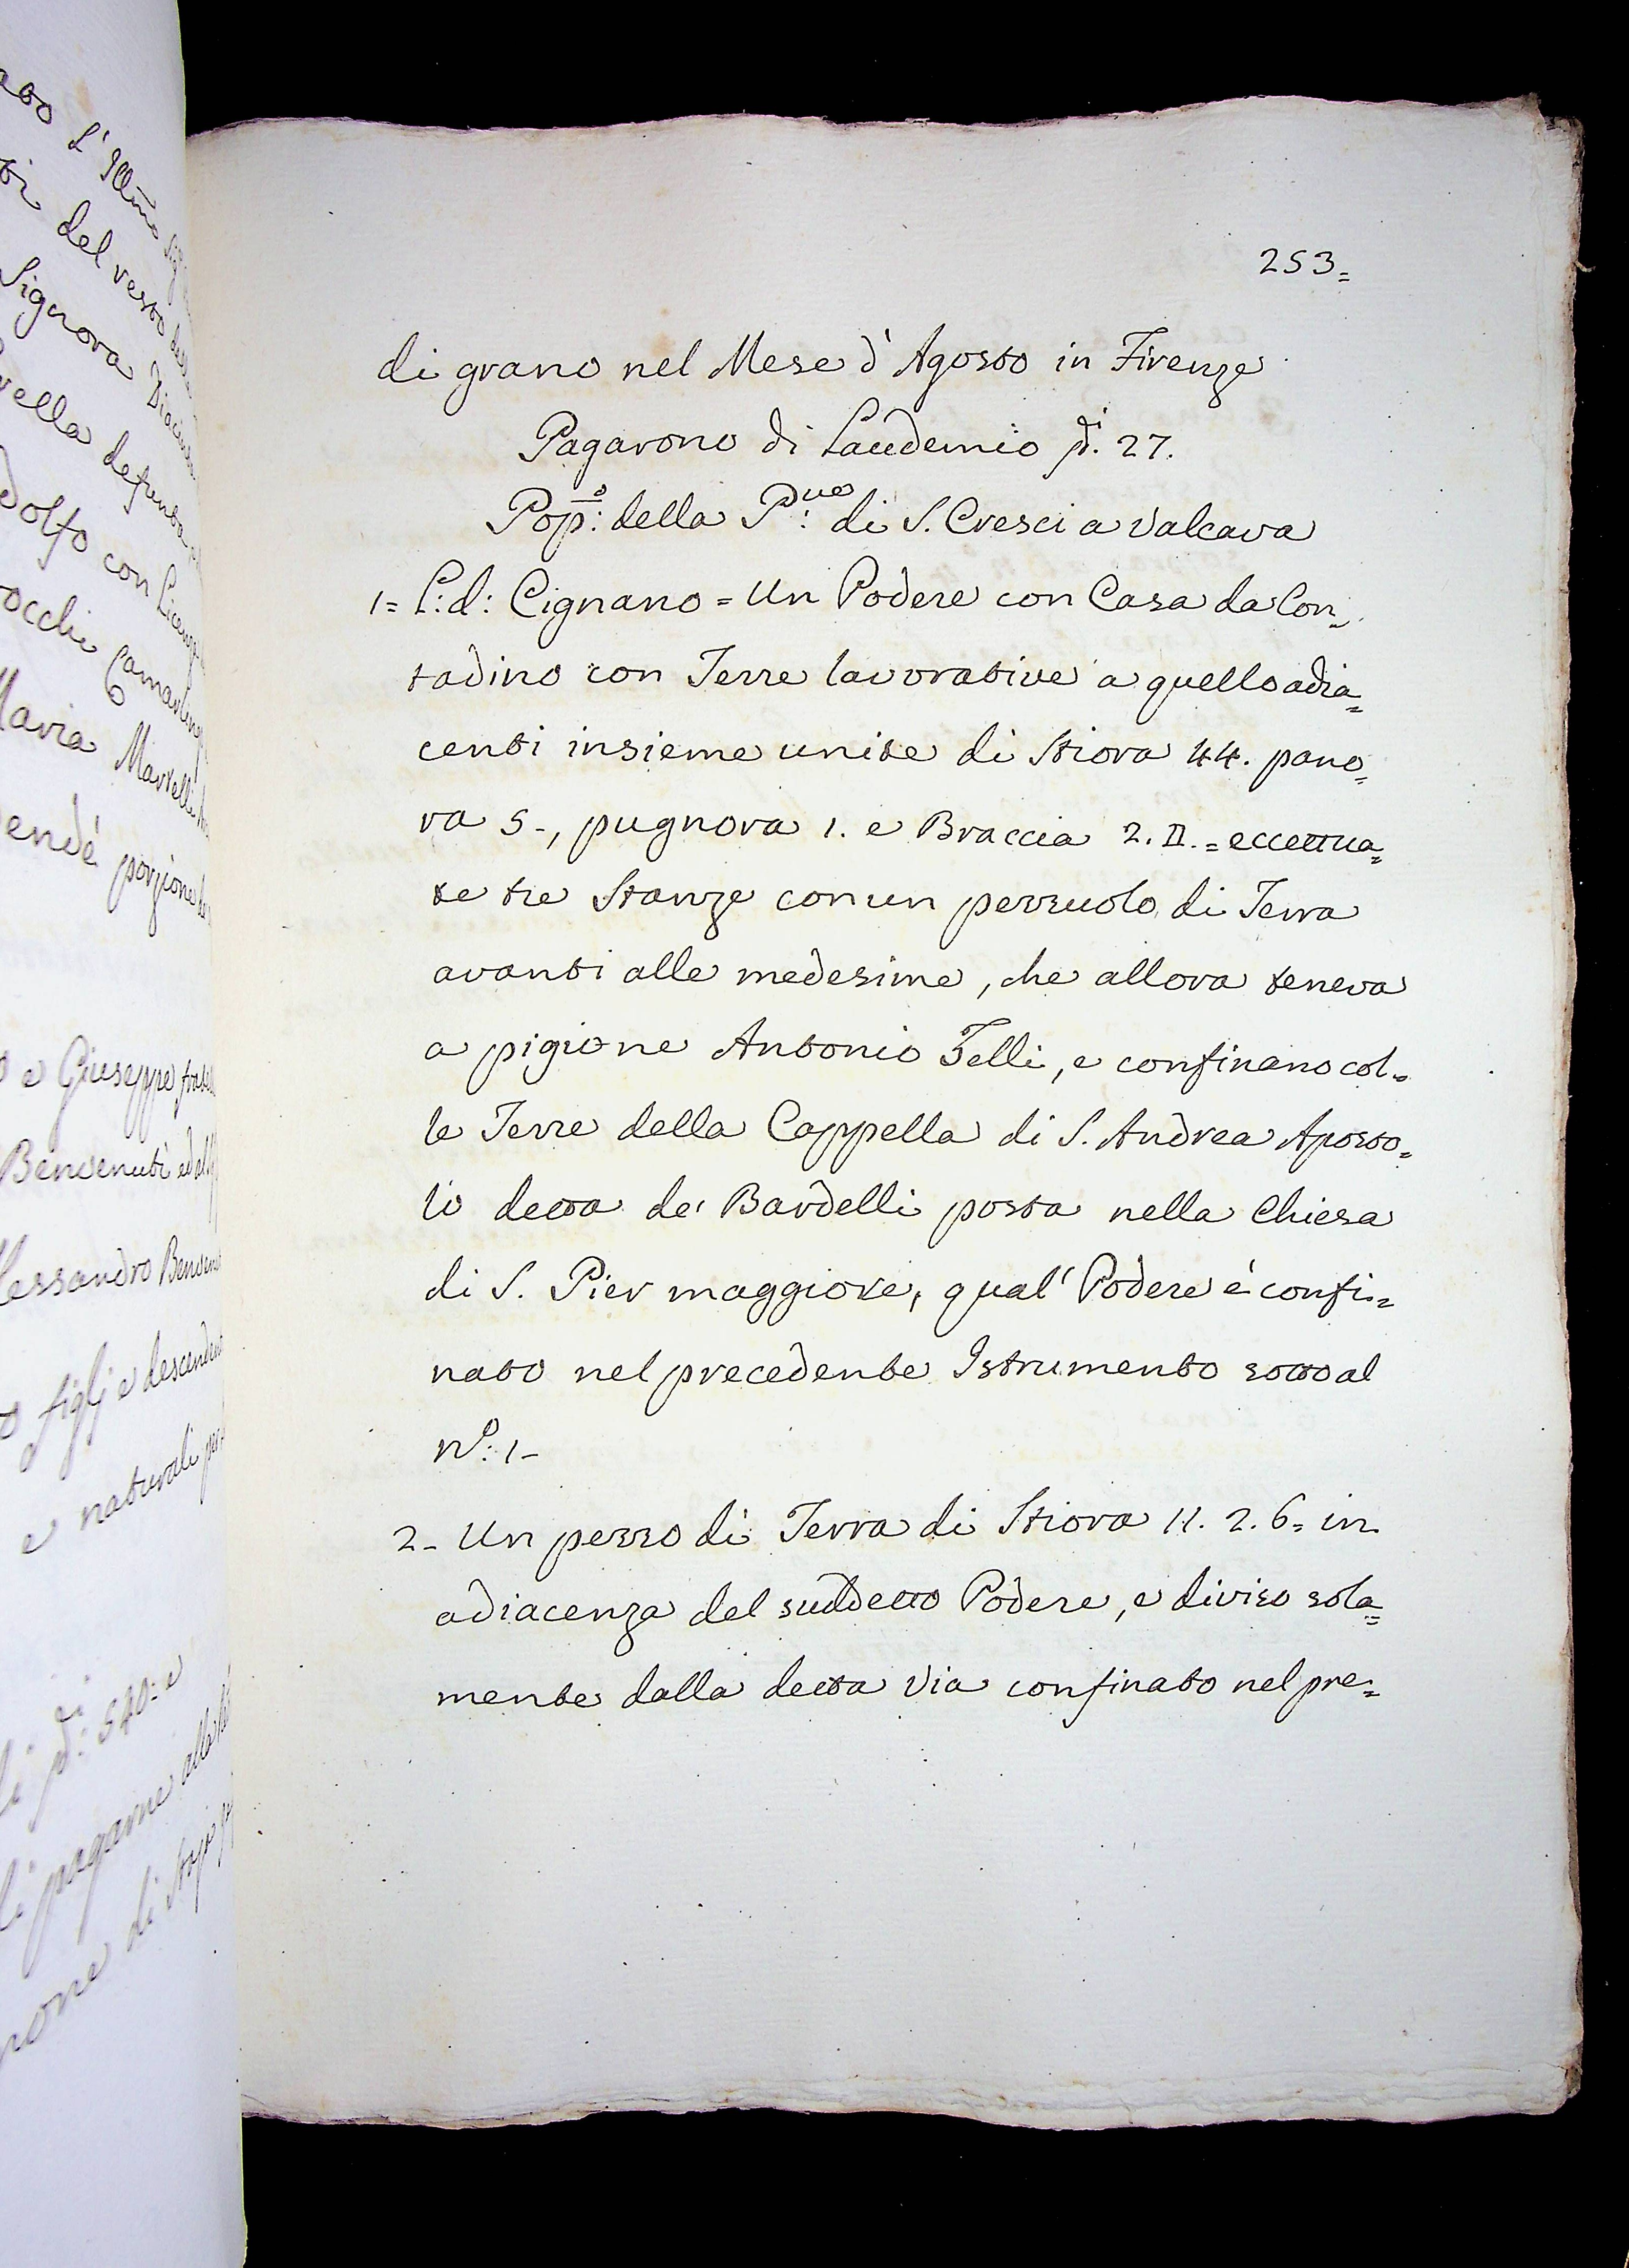 253=
di grano nel Mese d'Agosto in Firenze
Pagarono di Laudemio 27.
Pop:o della P:ve di S. Cresci a Valcava
1= L:d: Cignano = Un Podere con Casa da Con=
tadino con Terre lavorative a quello adia=
centi insieme unite di Stiora 44. pano=
ra 5-, pugnora 1. e Braccia 2. II. = eccettua=
te tre Stanze con un pezzuolo di Terra
avanti alle medesime, che allora teneva
a pigione Antonio Telli, e confinano col=
le Terre della Cappella di S. Andrea Aposto=
lo detta de' Bardelli posta nella Chiesa
di S. Pier maggiore, qual' Podere è confi=
nato nel precedente Istrumento sotto al
N.o: 1-
2- Un pezzo di Terra di Stiora 11. 2. 6= in
adiacenza del suddetto Podere, e diviso sola=
mente dalla detta Via confinato nel pre=
L' Illmo
del verso
Signora
defunta
con
Maria Martelli
porzione
e Giuseppe
Benvenuti
figlj e
e naturali
540: e
pagarne
di